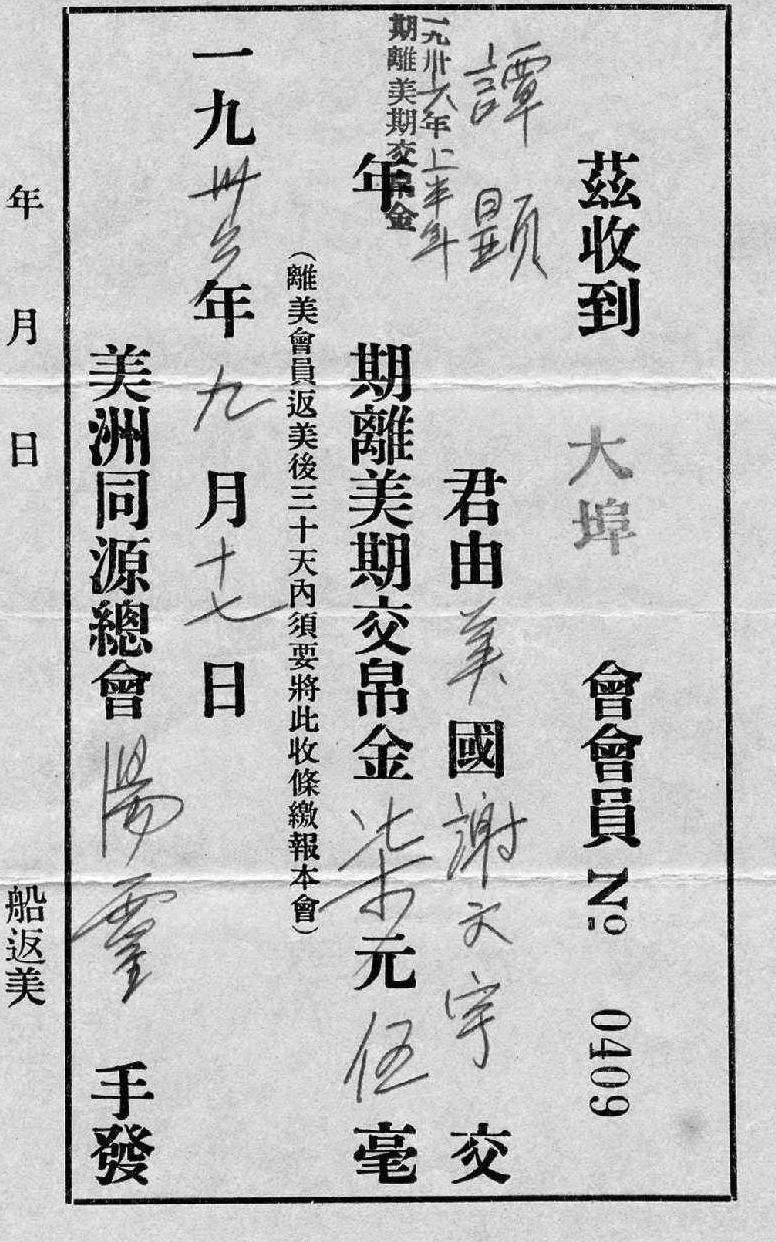 茲收到 大埠 會會員 № 0409
譚顯 君由美國謝文宇 交
一九卅六年上半年
期離美期交帛金
年 期離美期交帛金柒元伍毫
（離美會員返美後三十天內須要將此收條繳報本會）
一九卅六年九月十七日
美洲同源總會 湯 手發
年 月 日 船返美